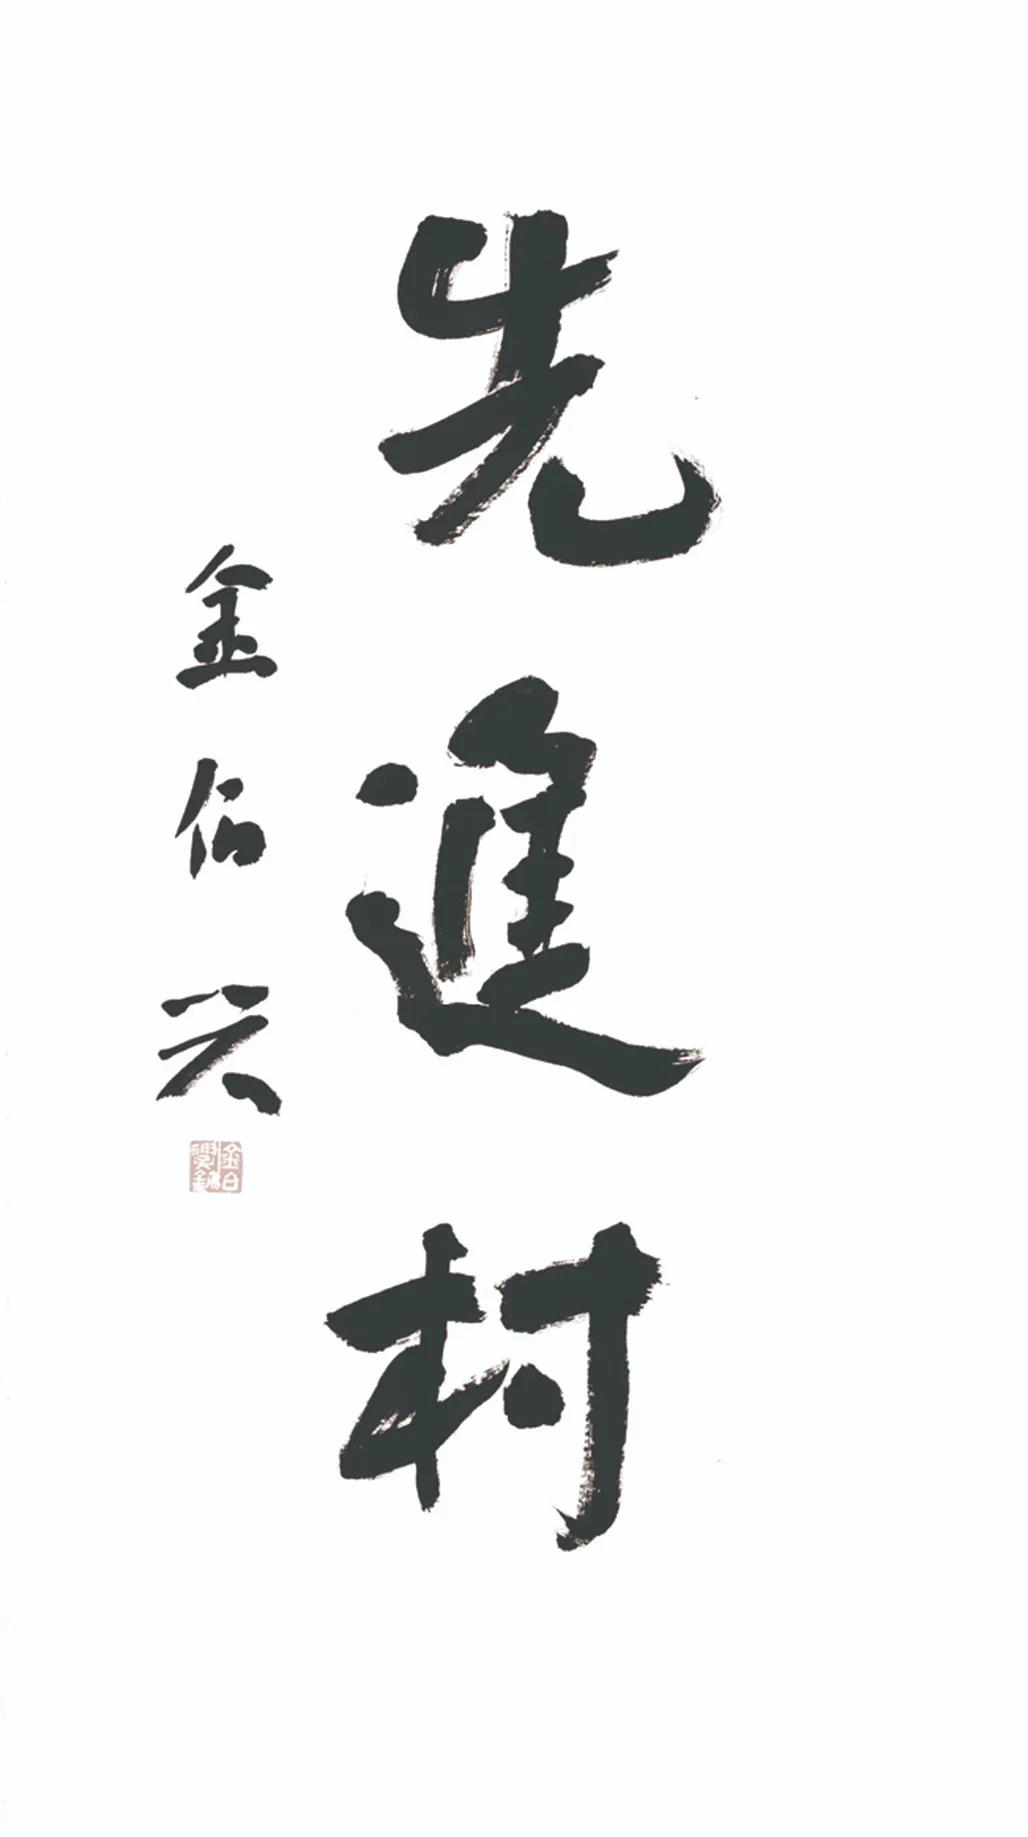 先進村
金伯兴